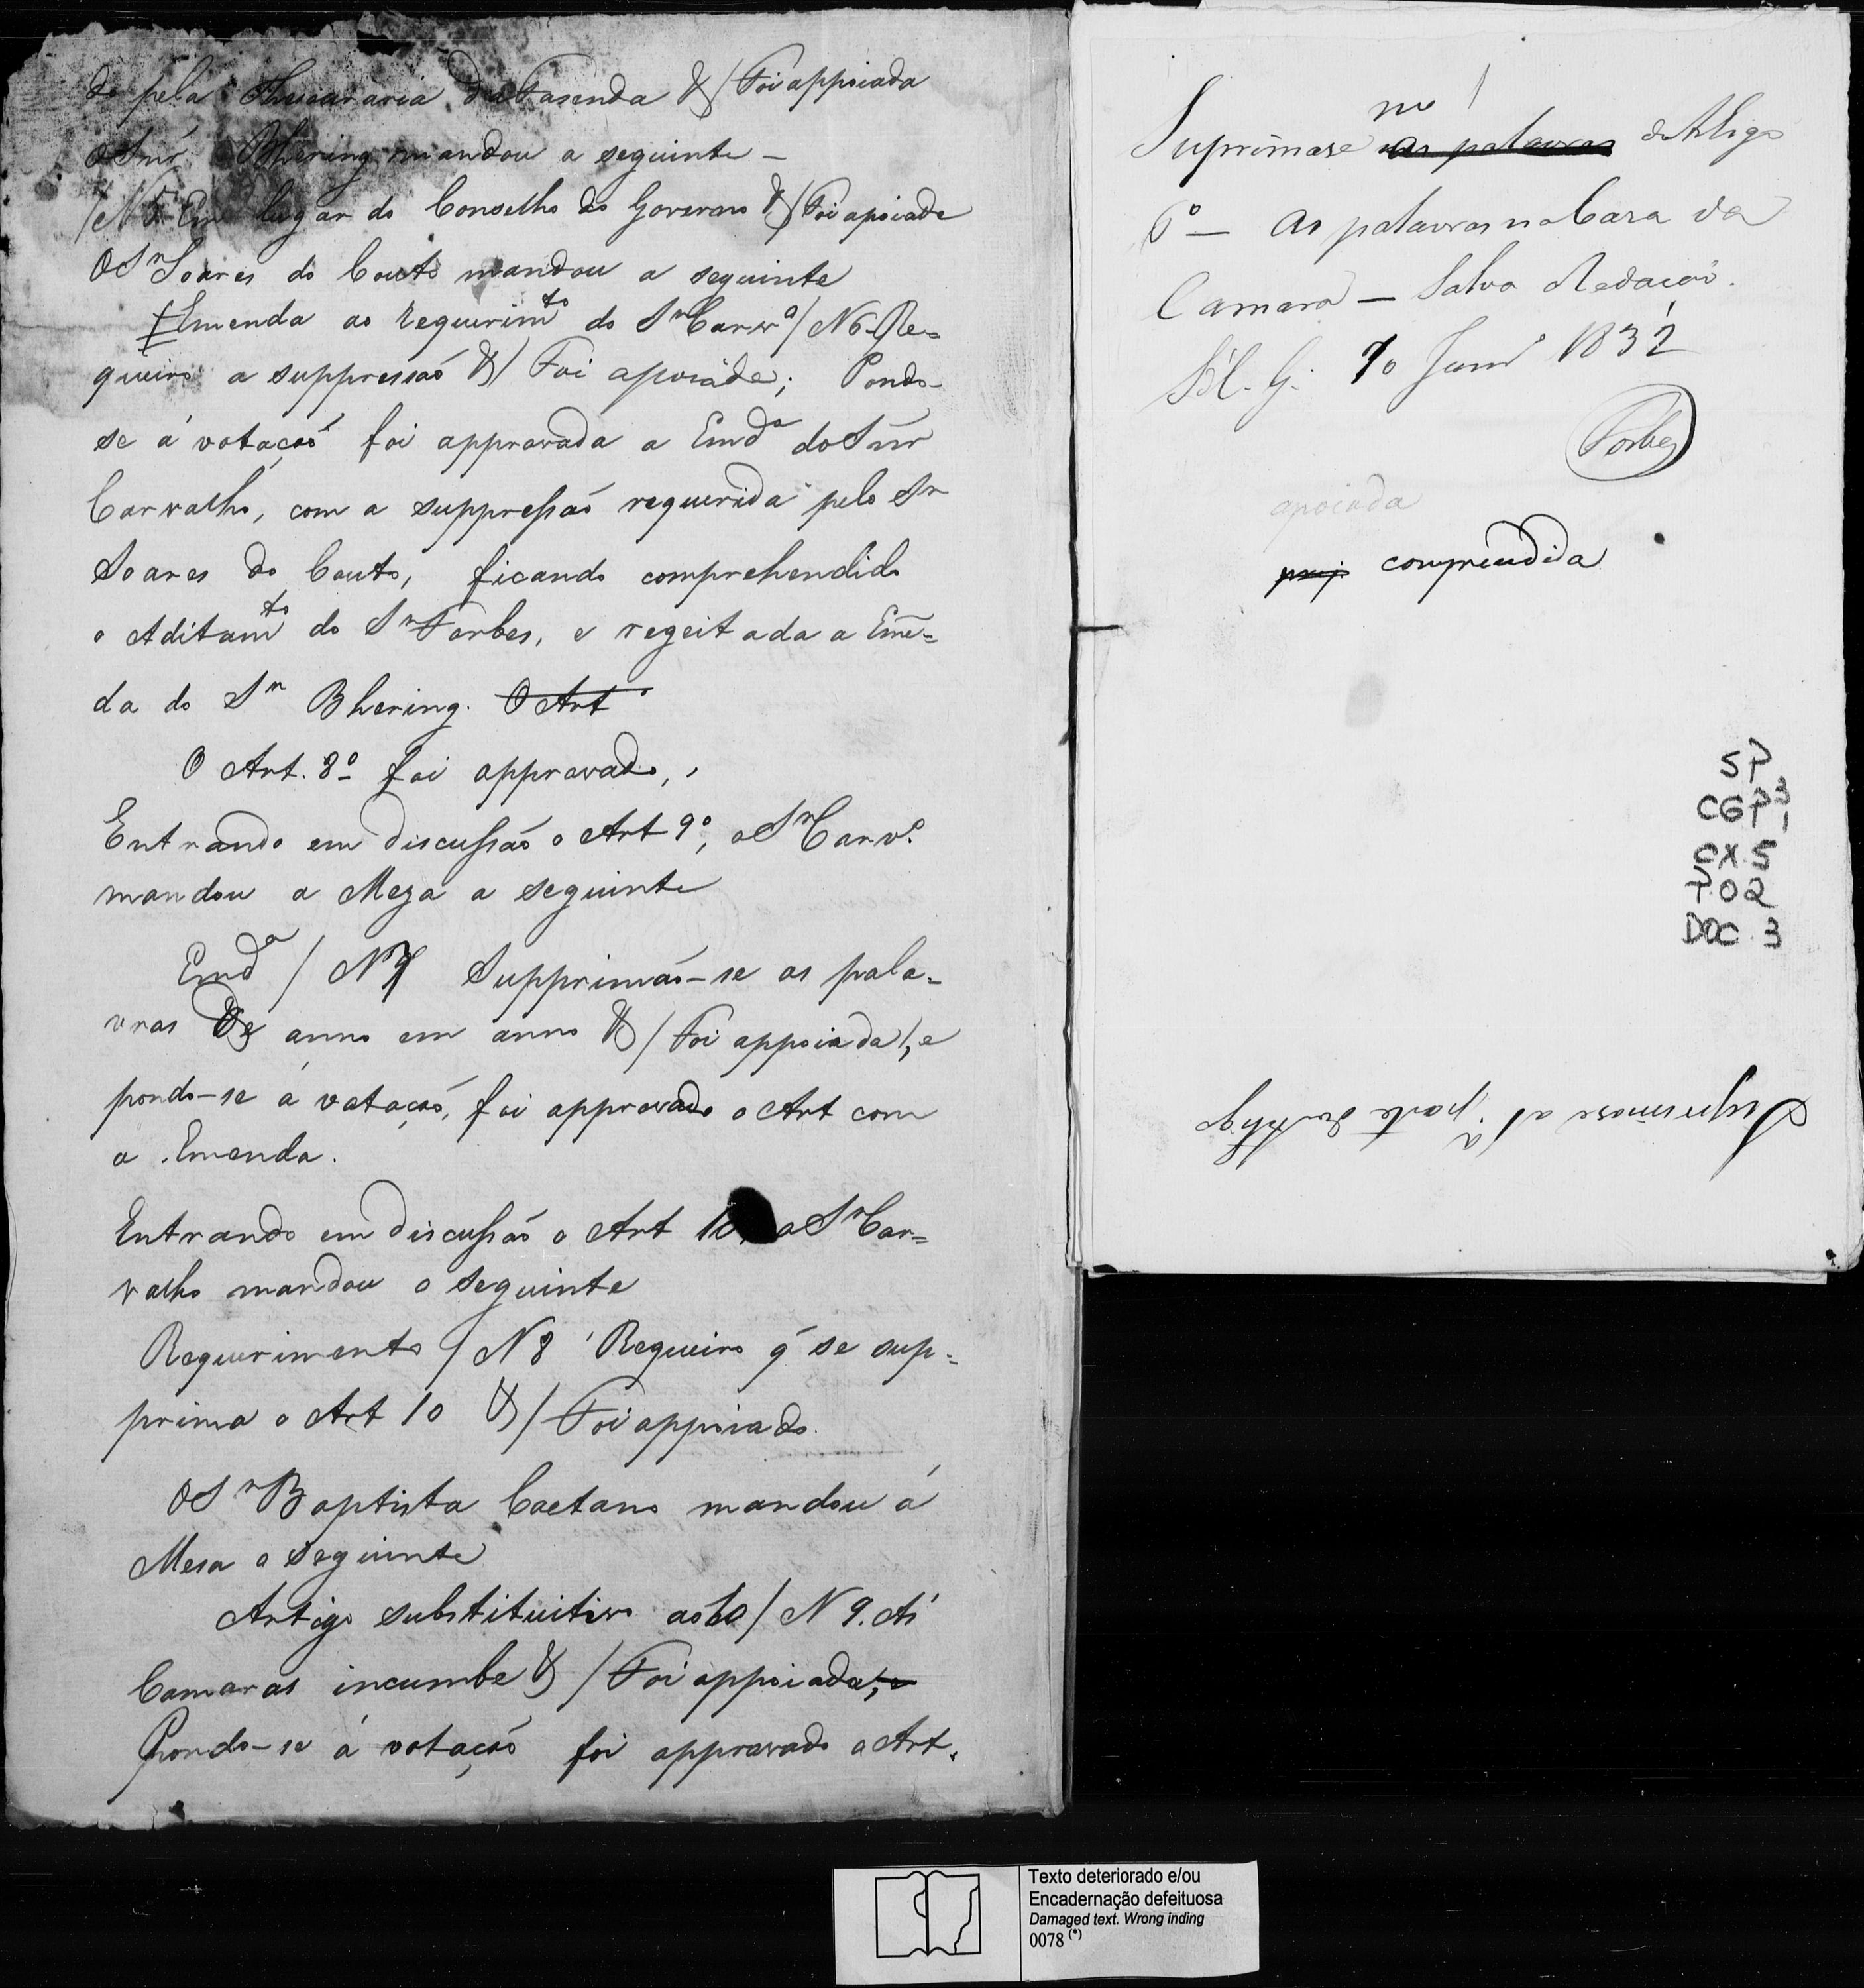 do pela Thesouraria da Fasenda &/ Foi appoiada
O Snr. Bhering mandou a seguinte –
/N 5 Em lugar do Conselho do Governo &/ Foi apoiada
O Sr Soares do Couto mandou a seguinte
Emenda ao requerimto do Sr Carvo / N 6 – Re=
queiro a suppressaõ &/ Foi apoiada; Pondo-
se á votaçaõ foi approvada a Emda do Snr
Carvalho, com a suppressaõ requerida pelo Sr
Soares do Couto, ficando comprehendido
o Aditamto do Sr Forbes, e regeitada a Eme=
da do Sr Bhering. O Art
O Art. 8º foi approvado,
Entrando em discussaõ o Art 9º, o Sr Carvo
mandou a Meza a seguinte
Emda / N 7 Supprimaõ-se as pala=
vras de anno em anno &/ Foi appoiada/, e
pondo-se á votaçaõ, foi approvado o Art com
a Emenda.
Entrando em discussaõ o Art 10, o Sr Car=
valho mandou o seguinte
Requerimento / N 8 Requeiro q̃ se sup=
prima o Art 10 &/ Foi appoiado.
O Sr Baptista Caetano mandou á
Mesa o seguinte
Artigo substituitivo ao 10 / N 9. Ás
Camaras incumbe &/ Foi appoiada,
Pondo-se á votaçaõ foi approvado o Art.
Suprimase no as palavras do Artigo
6º – As palavras na Casa da
Camara – Salva Redacaõ.
10 Janrº 1832
Forbes
apoiada
prej. comprendida
SP
CGP3 1
CX. 5
P. 02
DOC. 3
Suprimase a 1ª parte do Artigo
Texto deteriorado e/ou
Encadernação defeituosa
Damaged text. Wrong inding
0078 (*)